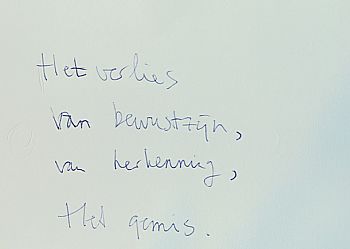 Het verlies
van bewustzijn,
van herkenning,
Het gemis.